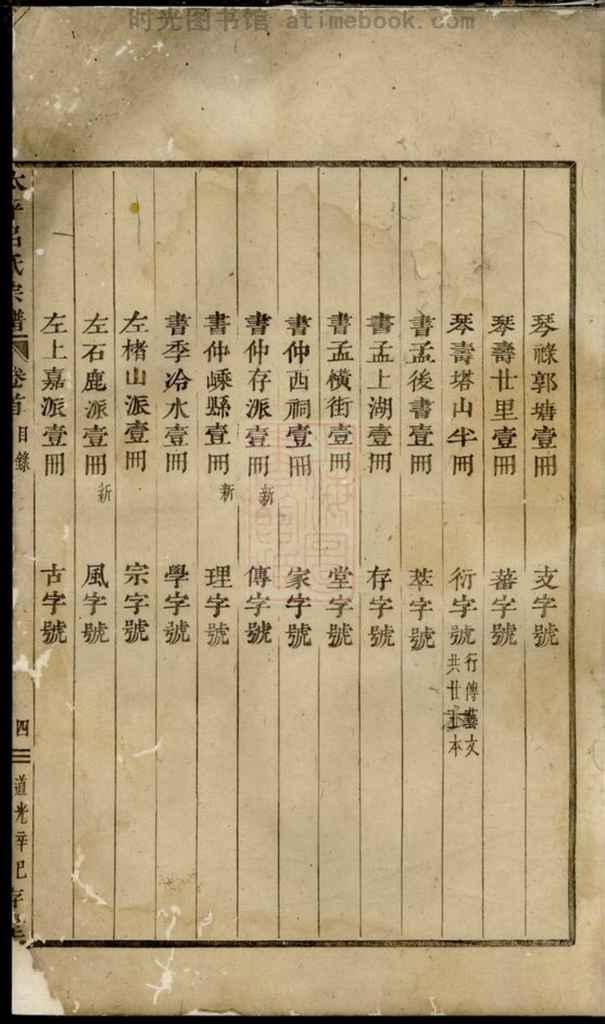 时光图书馆 atimebook.com
琴祿郭塘壹冊 支字號
琴壽廿里壹冊 蕃字號
琴壽塔山半冊 衍字號 行傳藝文 共廿本
書孟後書壹冊 萃字號
書孟上湖壹冊 存字號
書孟橫街壹冊 堂字號
書仲西祠壹冊 家字號
書仲存派壹冊 新 傳字號
書仲嵊縣壹冊 新 理字號
書季冷水壹冊 學字號
左楮山派壹冊 宗字號
左石鹿派壹冊 新 風字號
左上嘉派壹冊 古字號
呂氏宗譜 卷首 目錄 四 道光辛巳